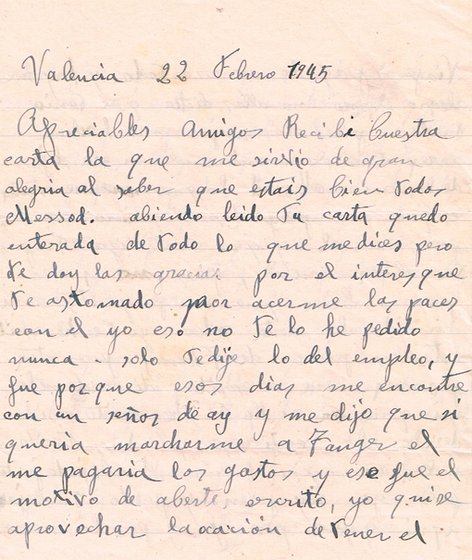 Valencia 22 Febrero 1945
Apreciables amigos Recibi buestra
carta la que me sirvio de gran
alegria al saber que estais bien todos
Messod. abiendo leido Tu carta quedo
enterada de todo lo que me dices pero
te doy las gracias por el interes que
te as tomado por acerme las paces
con el yo eso no te lo he pedido
nunca. solo te dije lo del empleo, y
fue porque esos dias me encontre
con un señor de ay y me dijo que si
queria marcharme a Tanger el
me pagaria los gastos y ese fue el
motivo de aberte escrito, yo quise
aprovechar la ocacion de tener el